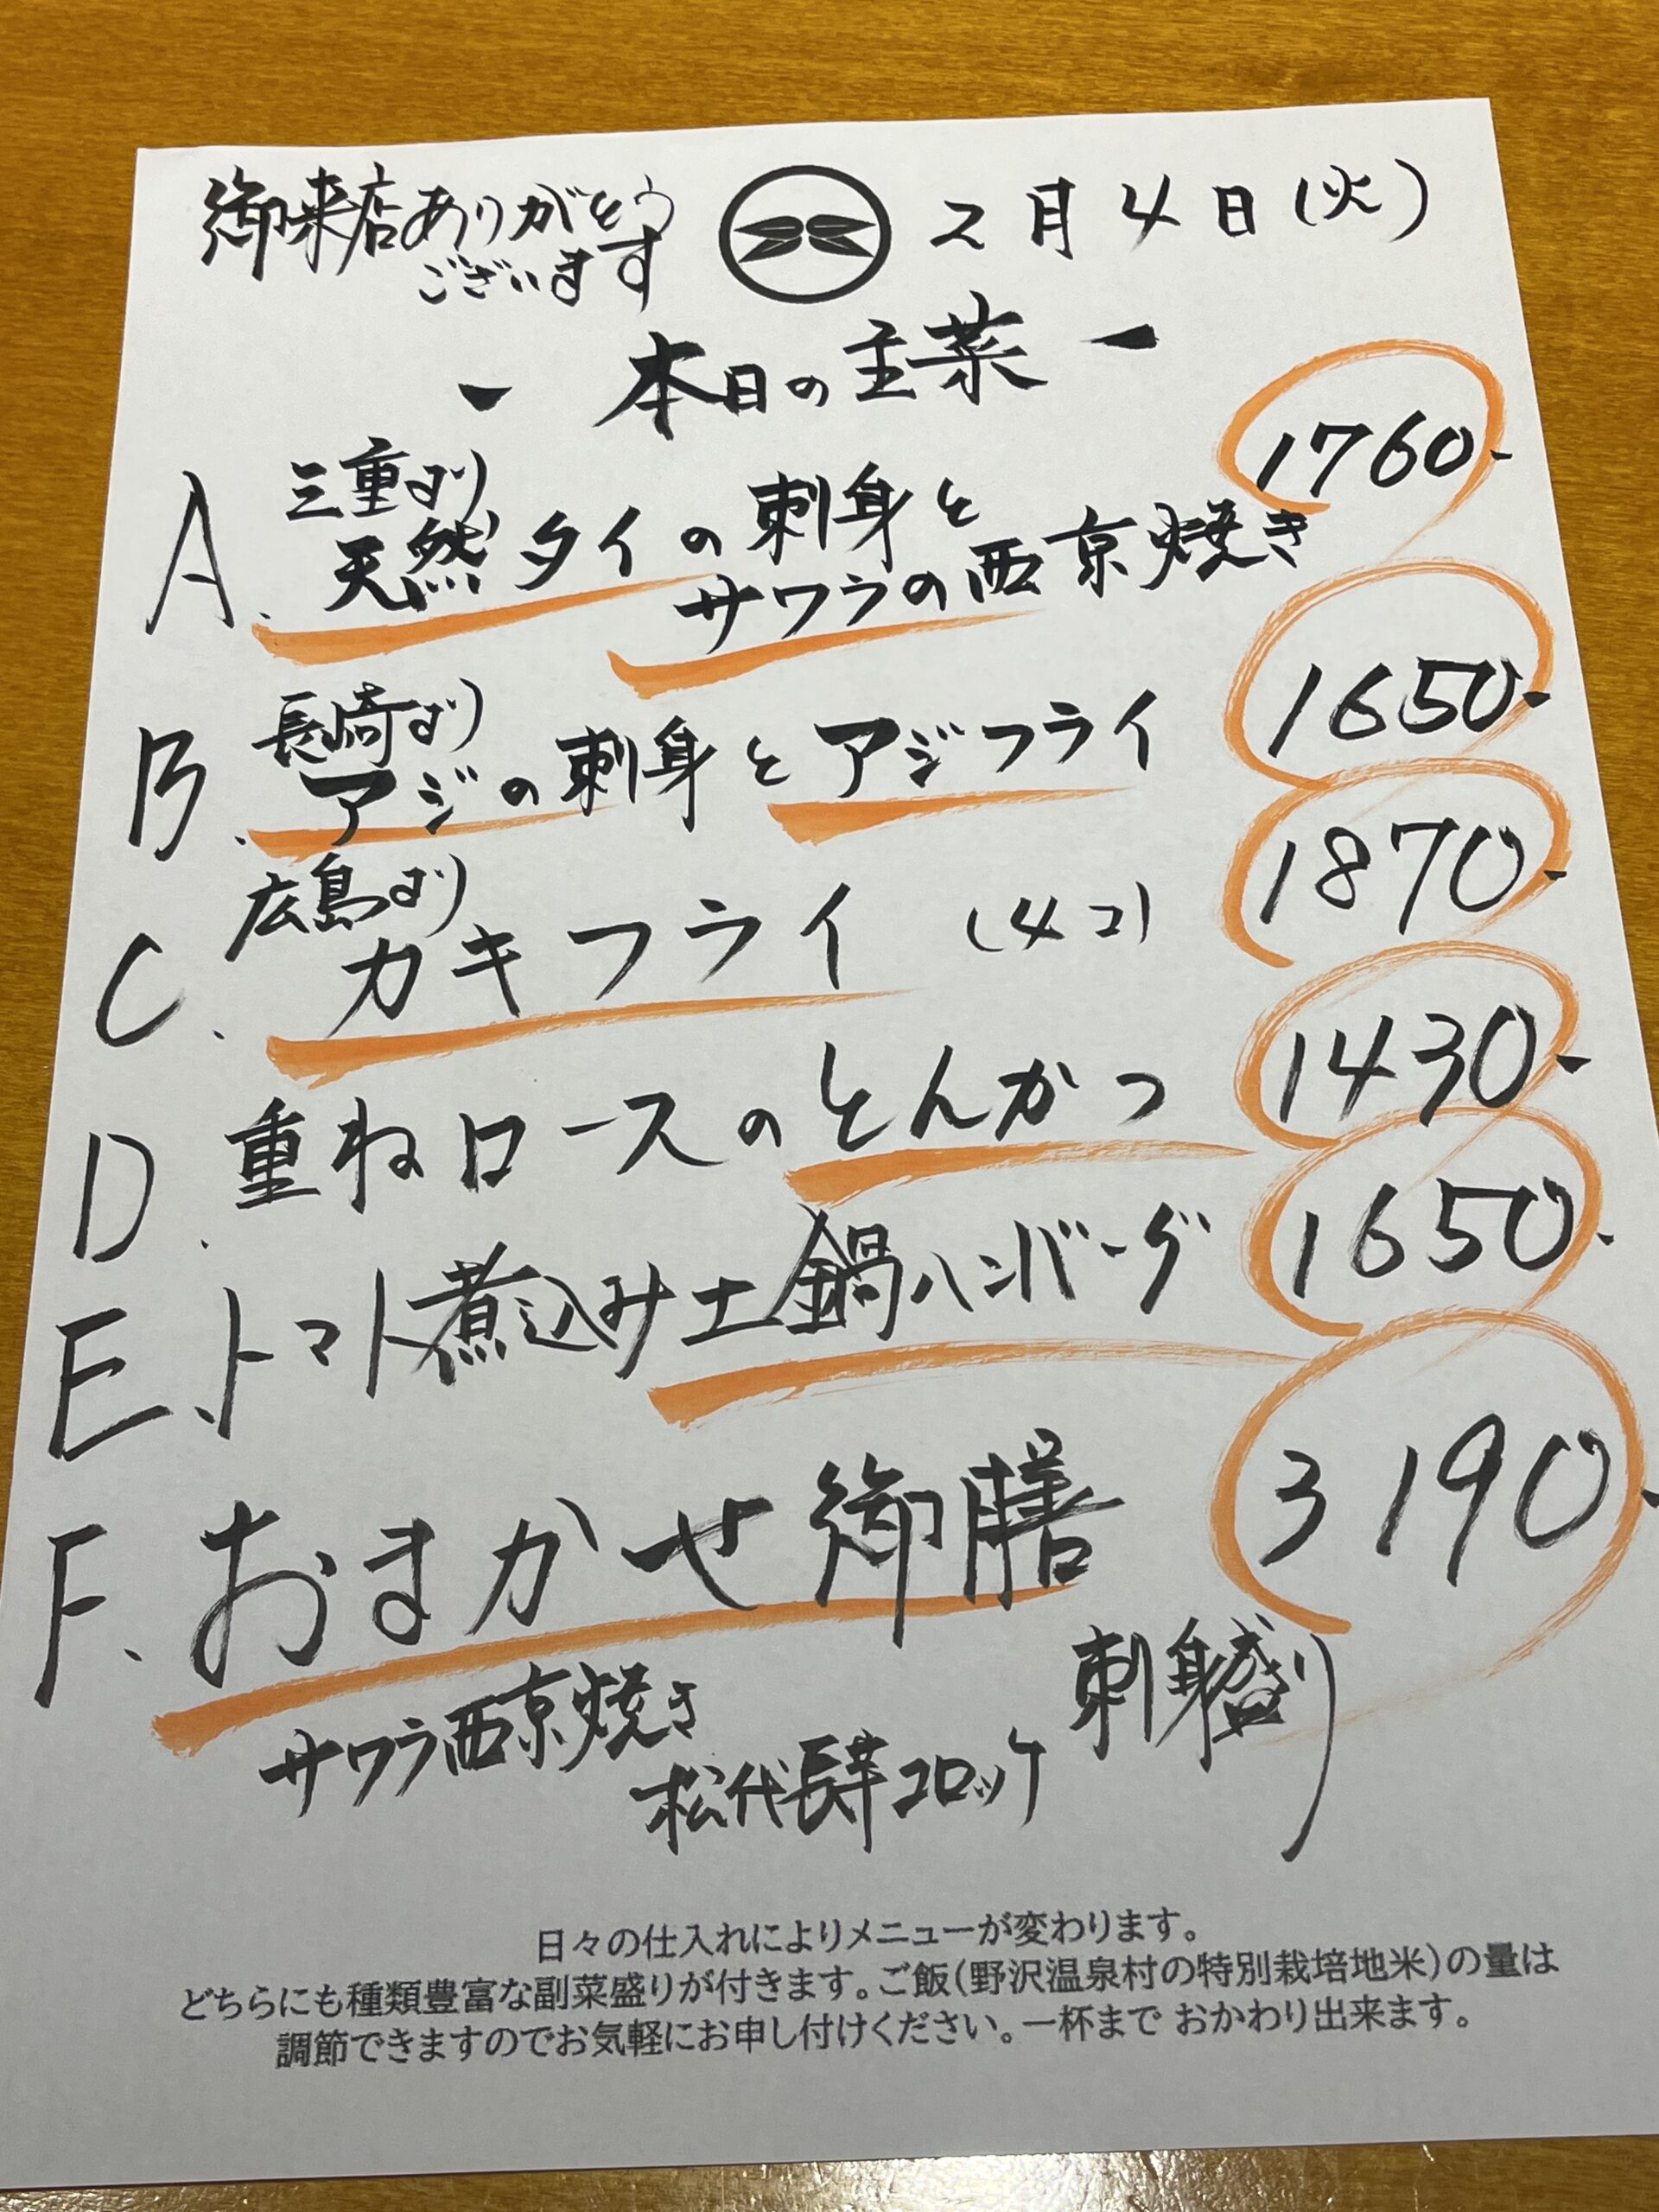 御来店ありがとう
ございます
2月4日(火)
- 本日の主菜 -
三重より
A. 天然タイの刺身と
サワラの西京焼き
1760-
長崎より
B. アジの刺身とアジフライ
1650-
広島より
C. カキフライ (4コ)
1870-
D. 重ねロースのとんかつ
1430-
E. トマト煮込み土鍋ハンバーグ
1650-
F. おまかせ御膳
3190-
サワラ西京焼き
松代長芋コロッケ
刺身盛り
日々の仕入れによりメニューが変わります。
どちらにも種類豊富な副菜盛りが付きます。ご飯(野沢温泉村の特別栽培地米)の量は
調節できますのでお気軽にお申し付けください。一杯まで おかわり出来ます。